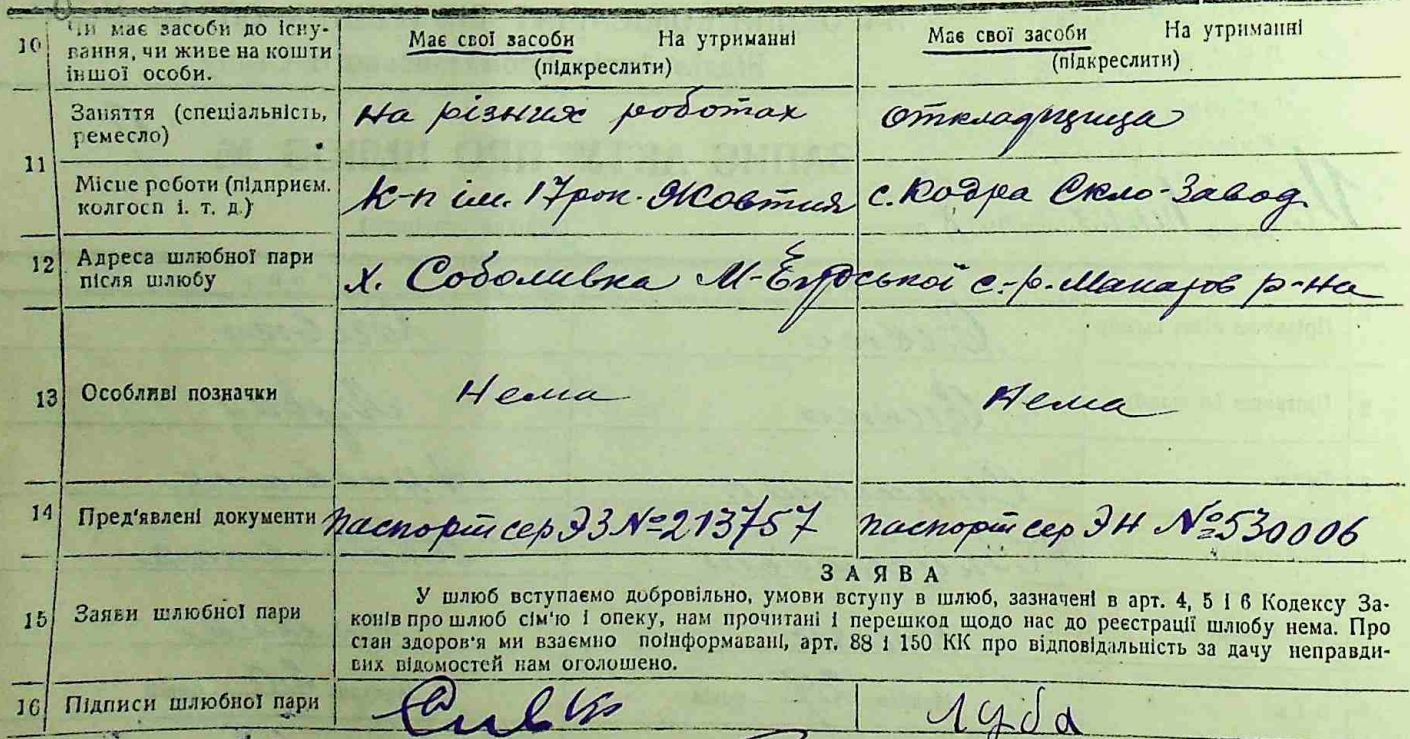 10 Чи має засоби до існу-
вання, чи живе на кошти
іншої особи.
Має свої засоби На утриманні
(підкреслити)
Має свої засоби На утриманні
(підкреслити)
11 Заняття (спеціальність,
ремесло)
на різних роботах
откладчица
Місце роботи (підприєм.
колгосп і. т. д.)
К-п ім. 17 рок. Жовтня
с. Кодра Скло-Завод
12 Адреса шлюбної пари
після шлюбу
х. Соболивка с.-р. Макаров р-на
13 Особливі позначки
Нема
Нема
14 Пред'явлені документи
паспорт сер ЭЗ №213757
паспорт сер ЭН №530006
15 Заяви шлюбної пари
ЗАЯВА
У шлюб вступаємо добровільно, умови вступу в шлюб, зазначені в арт. 4, 5 і 6 Кодексу За-
конів про шлюб сім'ю і опеку, нам прочитані і перешкод щодо нас до реєстрації шлюбу нема. Про
стан здоров'я ми взаємно поінформавані, арт. 88 і 150 КК про відповідальність за дачу неправди-
вих відомостей нам оголошено.
16 Підписи шлюбної пари